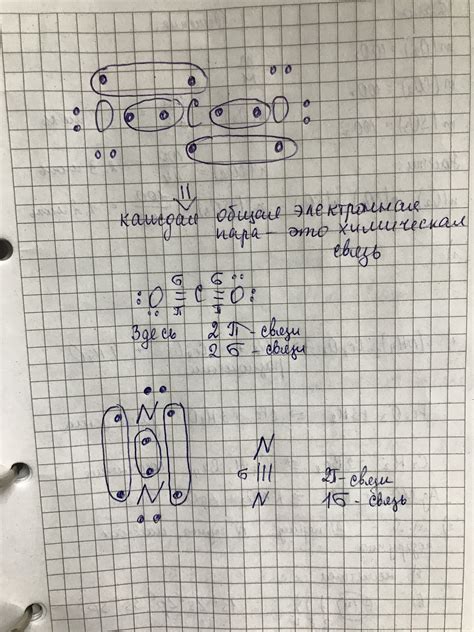 O C O
каждая общая электронная
пара - это химическая
связь
б б
O = C = O
π π
Здесь 2 π - связи
2 б - связи
N
N
N
б |||
N
2π - связи
1б - связь